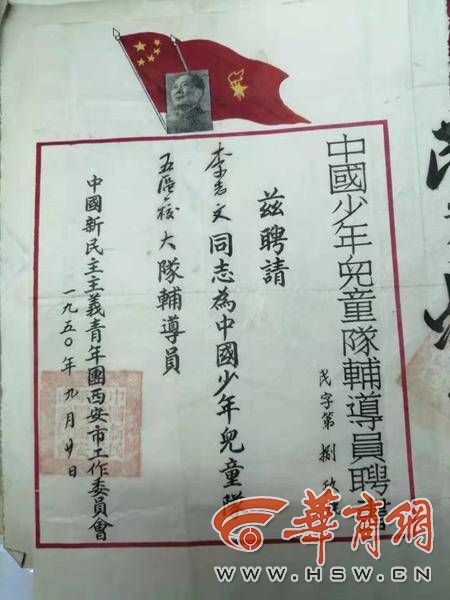 中國少年兒童隊輔導員聘書
民字第 捌 玖
茲聘請
李志文同志為中國少年兒童隊
五區一校大隊輔導員
中國新民主主義青年團西安市工作委員會
一九五〇年九月廿日
華商網
WWW.HSW.CN